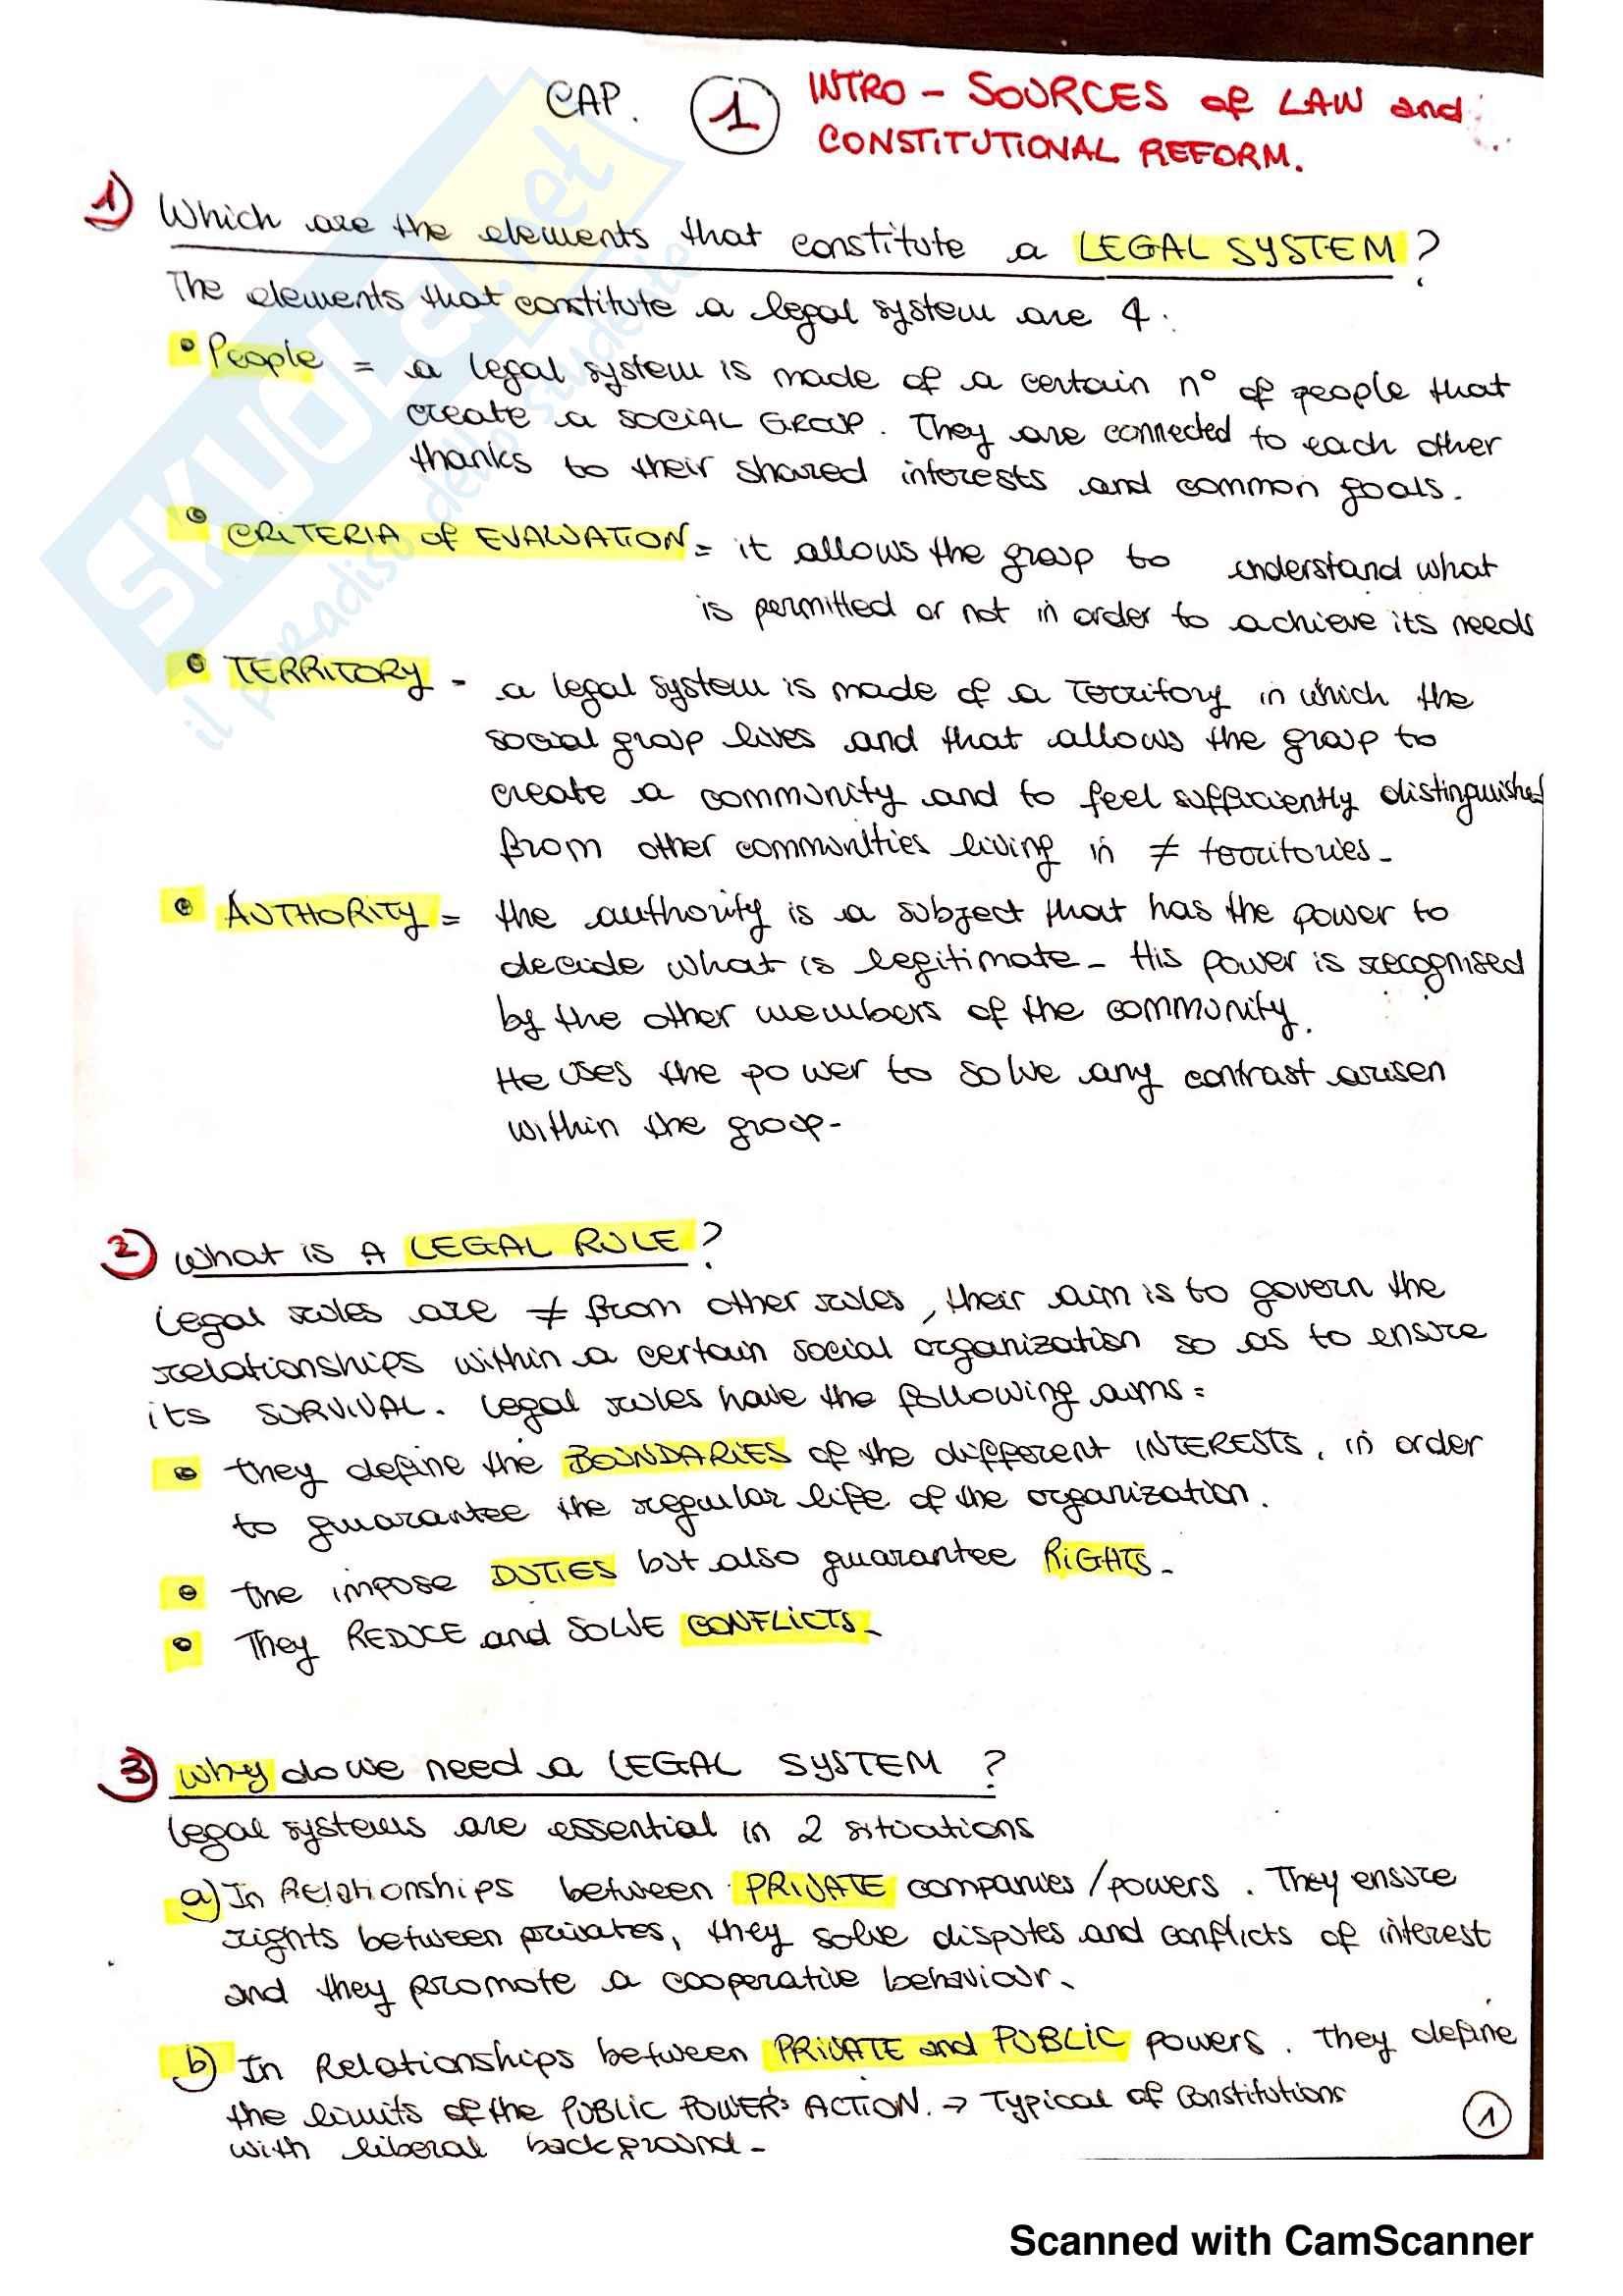 CAP. 1 INTRO - SOURCES of LAW and
CONSTITUTIONAL REFORM.
1) Which are the elements that constitute a LEGAL SYSTEM?
The elements that constitute a legal system are 4:
• People = a legal system is made of a certain n° of people that
create a SOCIAL GROUP. They are connected to each other
thanks to their shared interests and common goals.
• CRITERIA of EVALUATION = it allows the group to understand what
is permitted or not in order to achieve its needs
• TERRITORY - a legal system is made of a territory in which the
social group lives and that allows the group to
create a community and to feel sufficiently distinguished
from other communities living in ≠ territories-
• AUTHORITY = the authority is a subject that has the power to
decide what is legitimate- His power is recognised
by the other members of the community.
He uses the power to solve any contrast arisen
within the group-
2) What is A LEGAL RULE?
Legal rules are ≠ from other rules, their aim is to govern the
relationships within a certain social organization so as to ensure
its SURVIVAL. Legal rules have the following aims=
• they define the BOUNDARIES of the different INTERESTS, in order
to guarantee the regular life of the organization.
• the impose DUTIES but also guarantee RIGHTS-
• They REDUCE and SOLVE CONFLICTS-
3) Why do we need a LEGAL SYSTEM?
Legal systems are essential in 2 situations
a) In Relationships between PRIVATE companies/powers. They ensure
rights between privates, they solve disputes and conflicts of interest
and they promote a cooperative behaviour.
b) In Relationships between PRIVATE and PUBLIC powers. They define
the limits of the PUBLIC POWER's ACTION. → Typical of Constitutions
with liberal background-
1
SKUOLa.net
il paradiso dello studente
Scanned with CamScanner